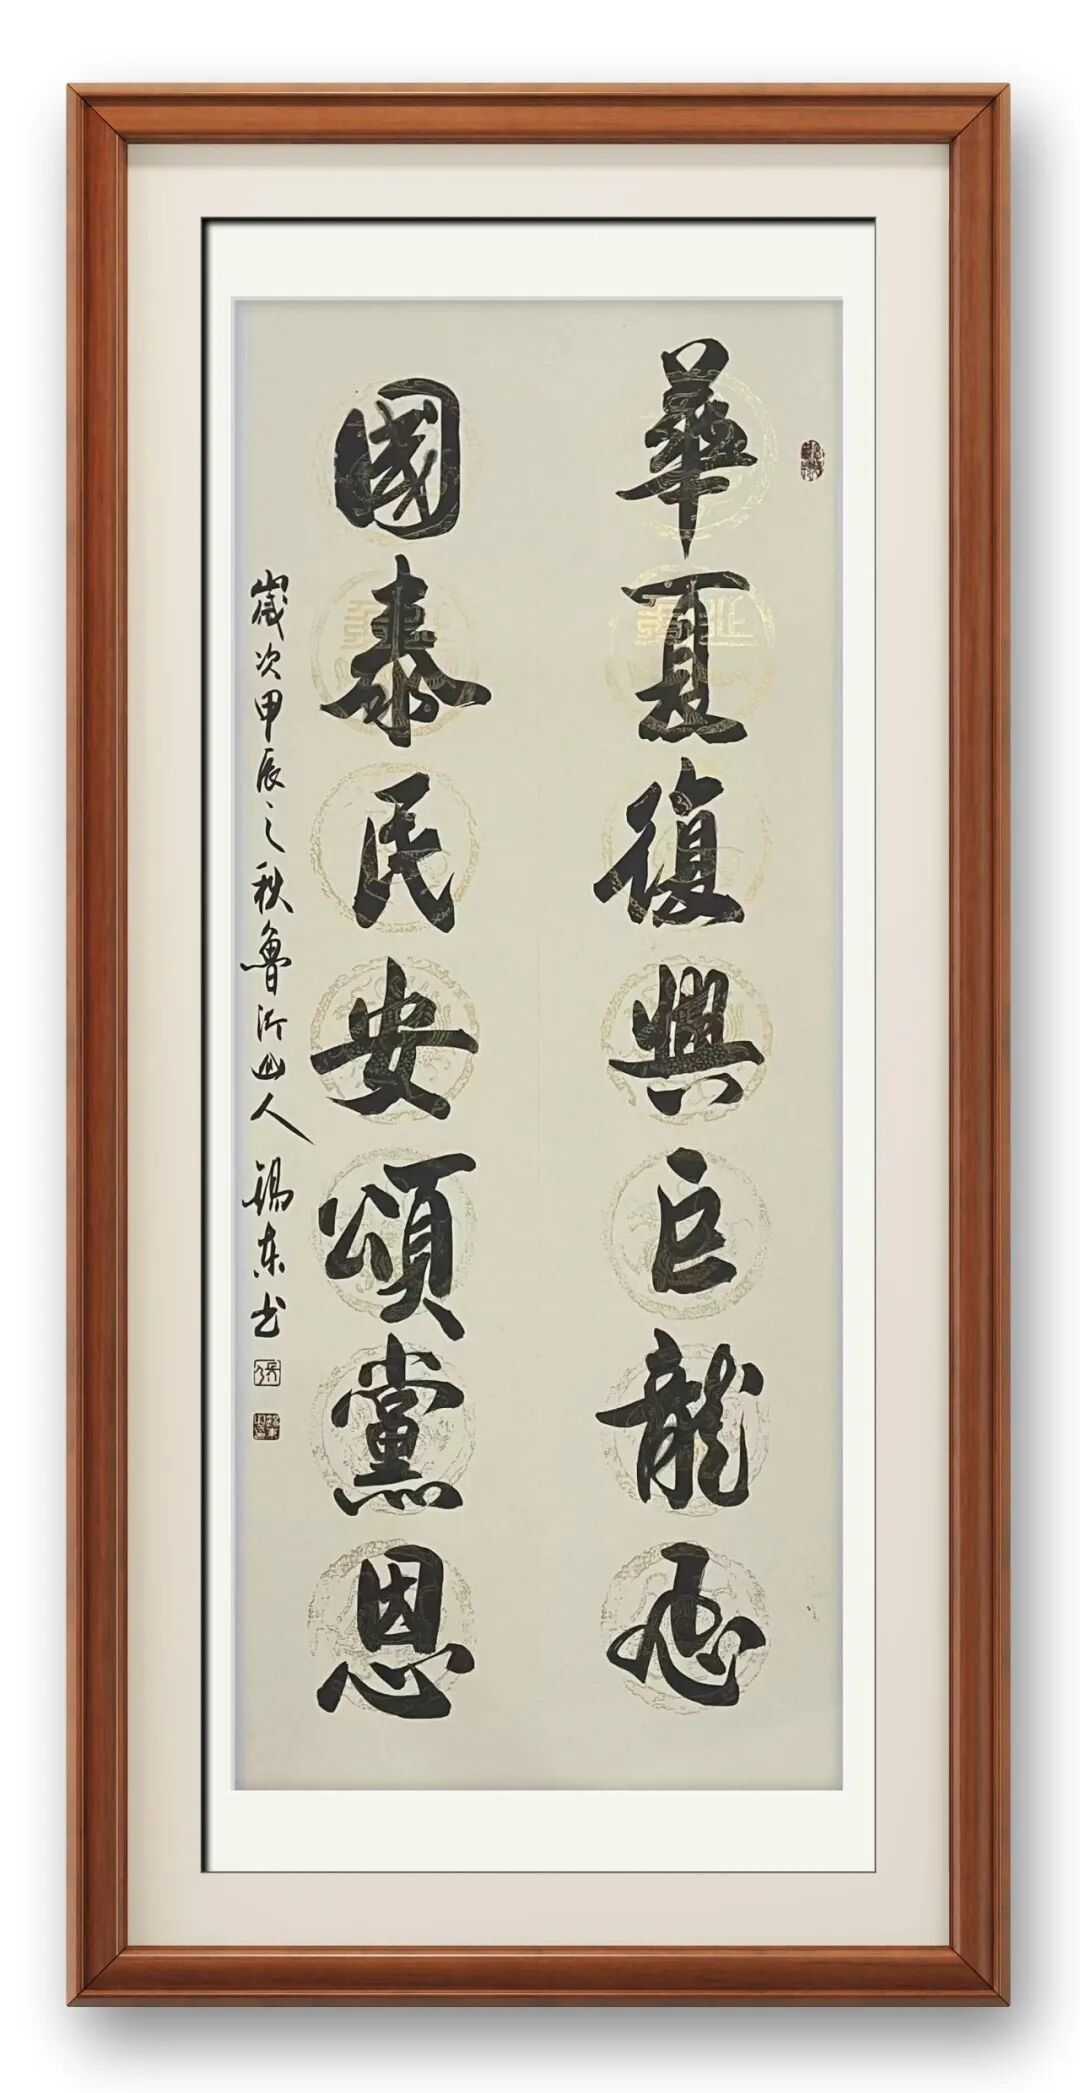 華夏復興巨龍飛
國泰民安頌黨恩
歲次甲辰之秋魯沂山人錫东书